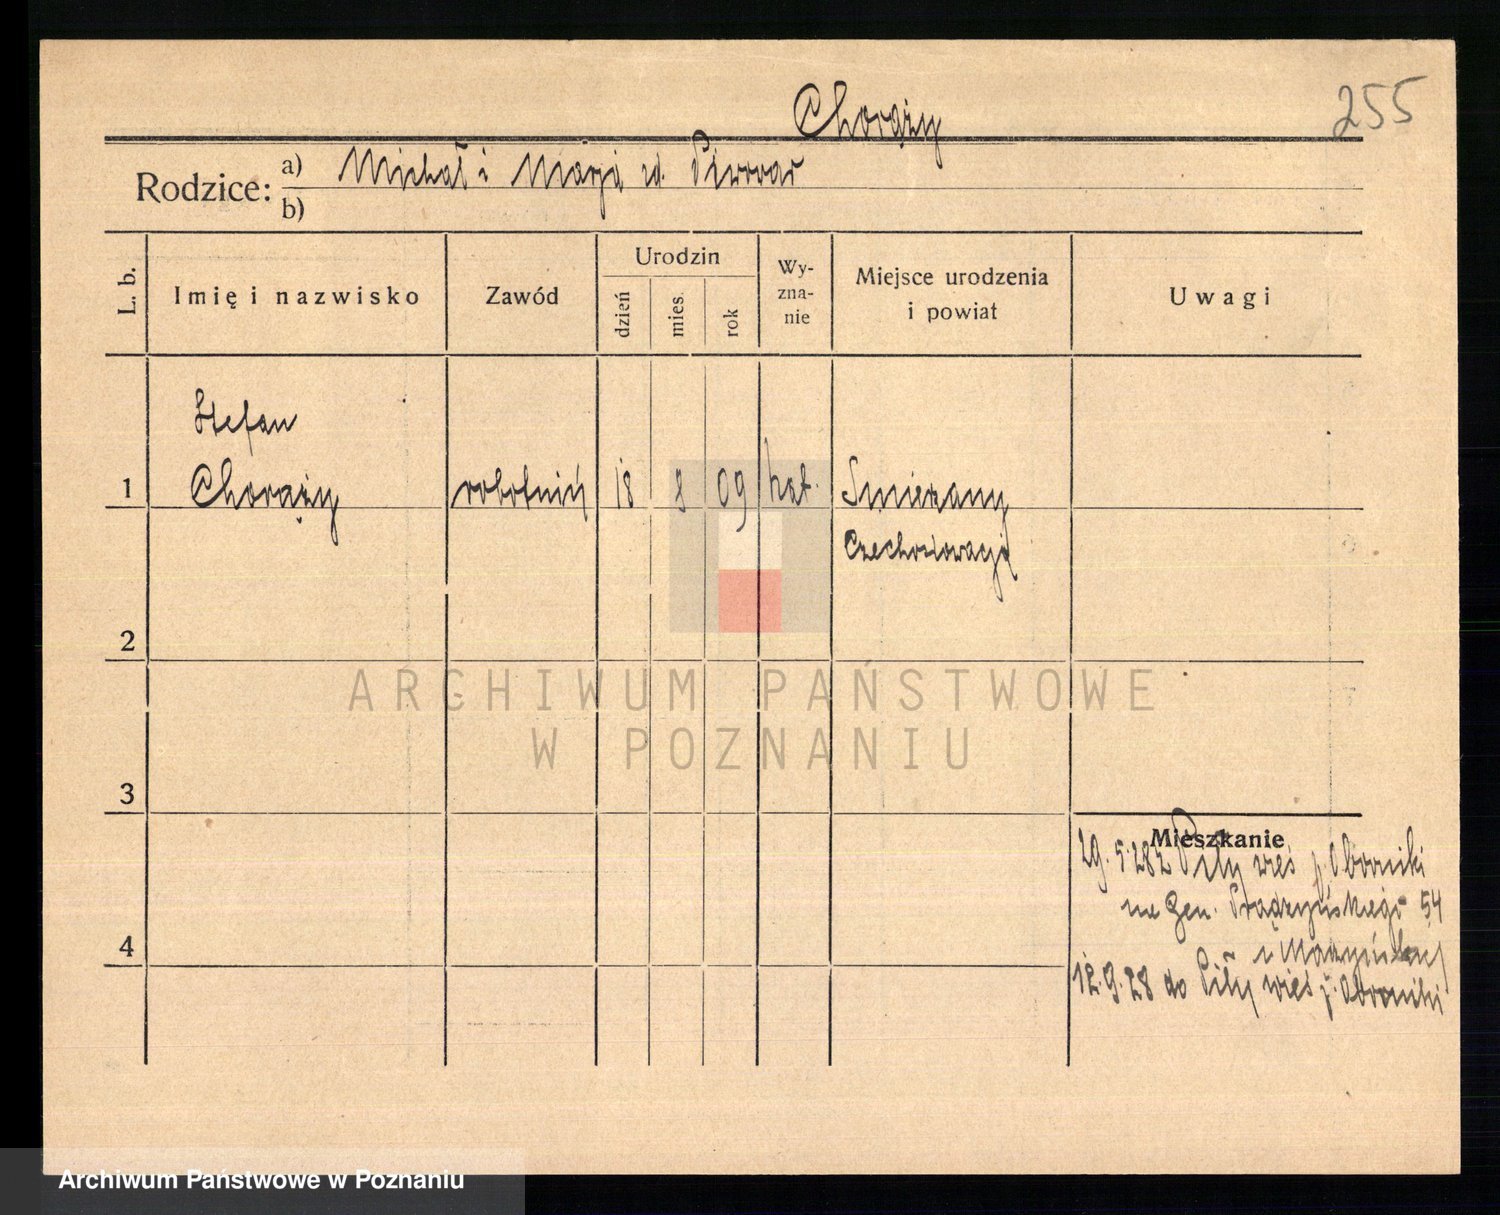 Chorąży
255
Rodzice: a) Michał i Marja zd. Piwowar
b)
L. b.
Imię i nazwisko
Zawód
Urodzin
dzień
mies.
rok
Wy-
zna-
nie
Miejsce urodzenia
i powiat
Uwagi
Stefan
1 Chorąży robotnik 18 8 09 kat.
Czechosłowacja
2
ARCHIWUM PAŃSTWOWE
W POZNANIU
3
Mieszkanie
29.5.28 z Piły wieś p. Oborniki
na Gen. Prądzyńskiego 54
4
12.9.28 do Piły wieś p. Oborniki
Archiwum Państwowe w Poznaniu